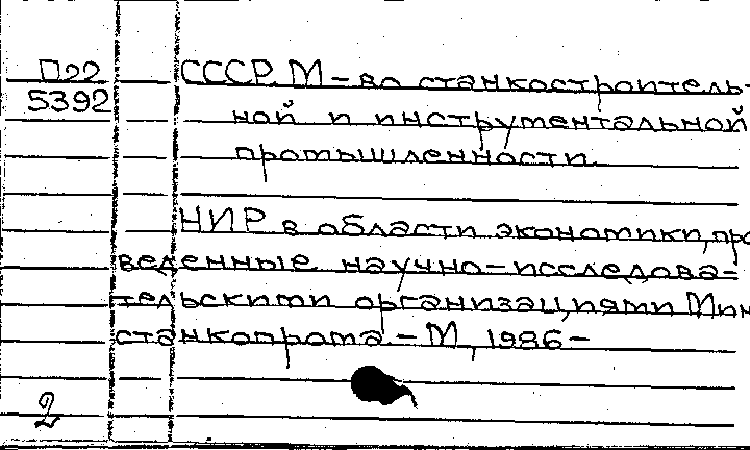 П22
5392
СССР. М-во станкостроитель-
ной и инструментальной
промышленности.
НИР в области экономики, про
веденные научно-исследова-
тельскими организациями Мин
станкопрома. - М, 1986 -
2